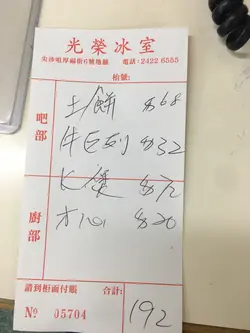 光榮冰室
尖沙咀厚福街6號地舖 電話:2422 6555
枱號:
吧部
土餅 $68
牛巨列 $32
廚部
$72
$20
請到柜面付賬 合計:
192
No 05704